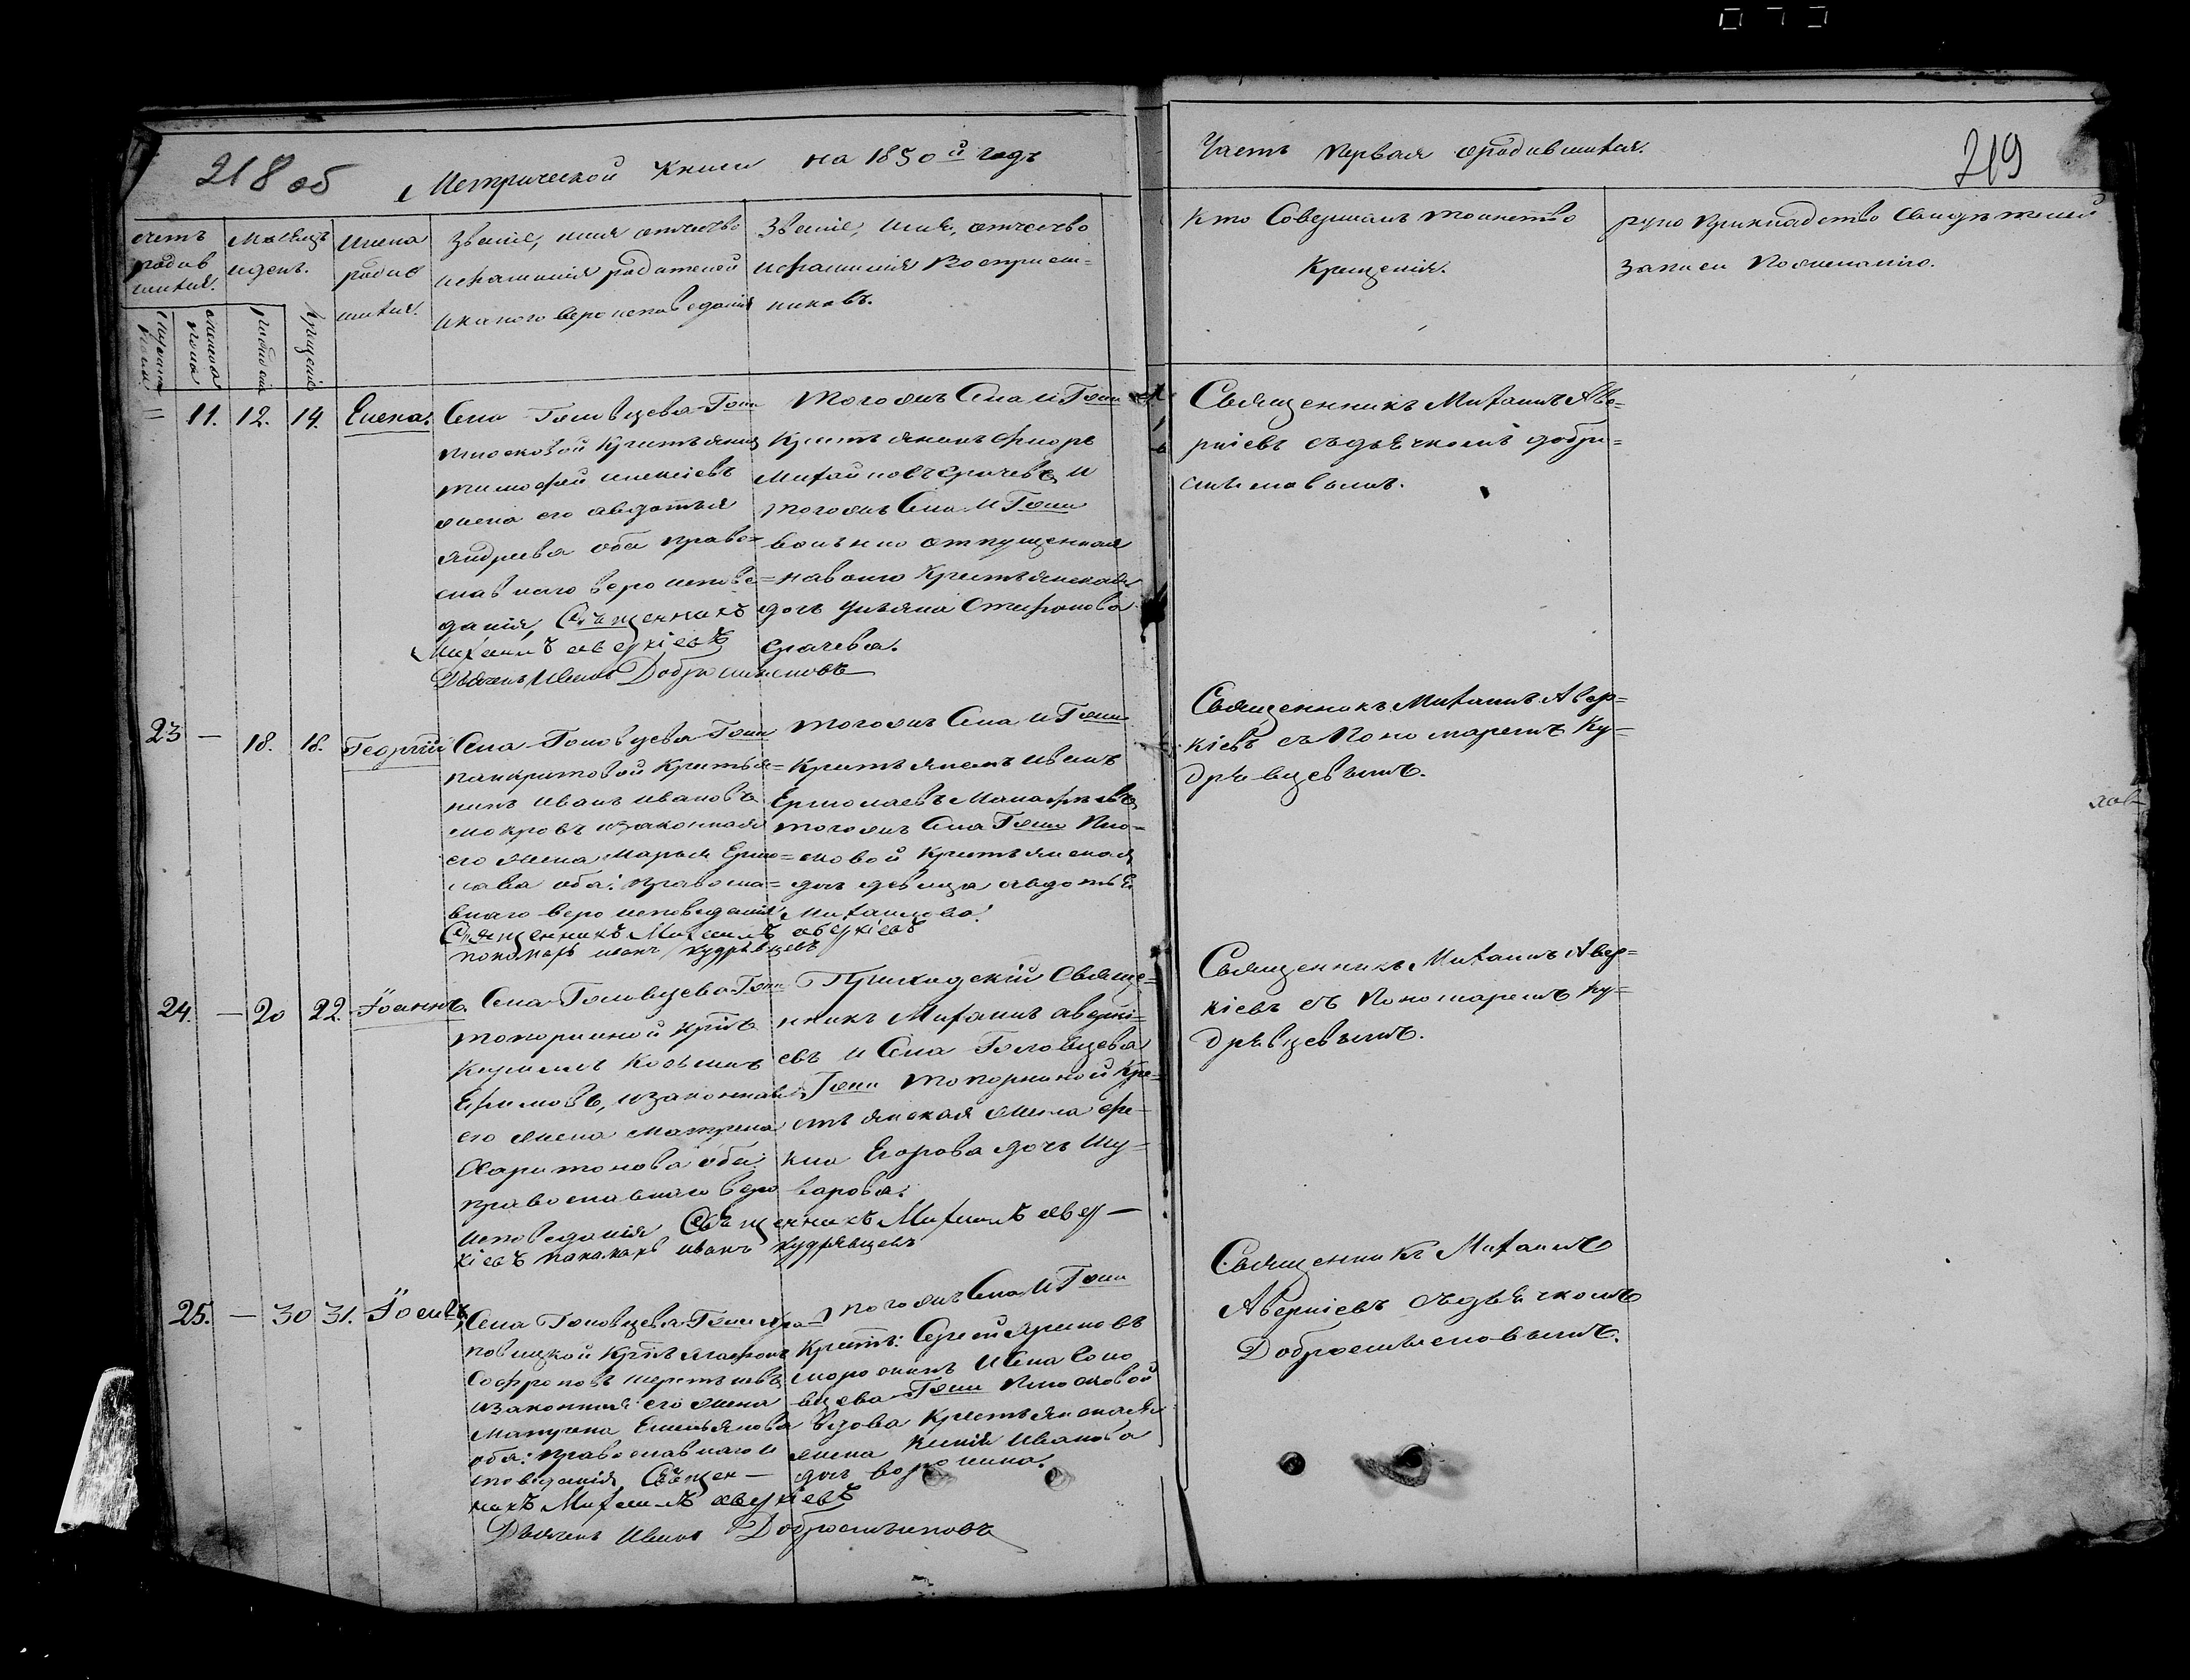 218 об
Метрической Книги на 1850й годъ
Часть Первая о родившихся.
219
счетъ родив шихся.
Месяцъ и день.
Имена родив шихся.
Званіе, имя отчество
и фамилія родителей
и какого вероисповеданія
Званіе, имя, отчество
и фамилія Воспріем=
никовъ.
Кто Совершалъ таинство
Крещенія.
руко прикладство свидетелей
записи по желанію.
женска пола
рожденія
Крещенія
11. 12. 14. Елена.
Села Головцева Гжи
крестьянинъ
Тимофей Алексіевъ
жена его Авдотья
Андреева оба право=
славнаго вероиспове=
данія, Священникъ
Михаилъ Аверкіевъ
Дьячекъ Иванъ Добросмысловъ
Тогожъ Села и Гжи
Крестьянинъ Флоръ
Михайловъ Грачевъ, и
тогожъ Села и Гжи
вольно отпущенная
на волю Крестьянская
дочь Ульяна Стефанова
Грачева.
Священникъ Михаилъ Аве=
ркіевъ съ дьячкомъ Добро=
смысловымъ.
23 — 18. 18. Георгій
Села Головцева Гжи
Панкратовой Крестья=
нинъ Иванъ Ивановъ
Мокровъ и законная
его жена Марья Ермо=
лаева оба: Правосла=
внаго вероисповеданія
Священникъ Михаилъ Аверкіевъ
пономарь иванъ кудрявцевъ
Тогожъ Села и Гжи
Крестьянинъ Иванъ
Ермолаевъ
тогожъ Села Гжи
Крестьянская
дочь девица Авдотья
Михайлова.
Священникъ Михаилъ Авер=
кіевъ съ Пономаремъ Ку=
дрявцевымъ.
24. — 20 22. Іоаннъ.
Села Головцева Гжи
Топорниной Крест
Козьминъ
Ефимовъ, и законная
его жена Матрена
Харитонова оба:
православнаго веро
исповеданія Священникъ Михаилъ Авер—
кіевъ панамарь иванъ кудрявцевъ
Приходскій Священ=
никъ Михаилъ Аверкі=
евъ и Села Головцева
Гжи Топорниной Кре=
стьянская жена Фе=
кла Егорова дочь Шу=
варова.
Священникъ Михаилъ Авер=
кіевъ съ Пономаремъ Ку=
дрявцевымъ.
25. — 30 31. Іосифъ,
Села Головцева Гжи
Крест Агафонъ
Софроновъ
и законная его жена
Матрена Емельянова
оба: православнаго и
споведанія Священ—
никъ Михаилъ Аверкіевъ
Дьячекъ Иванъ Добросмысловъ
Тогожъ Села и Гжи
Крестъ: Сергей
и Села Голо
вцева Гжи
вдова Крестьянская
жена Ксенія Иванова
дочь Воронина.
Священникъ Михаилъ
Аверкіевъ съ дьячкомъ
Добросмысловымъ.